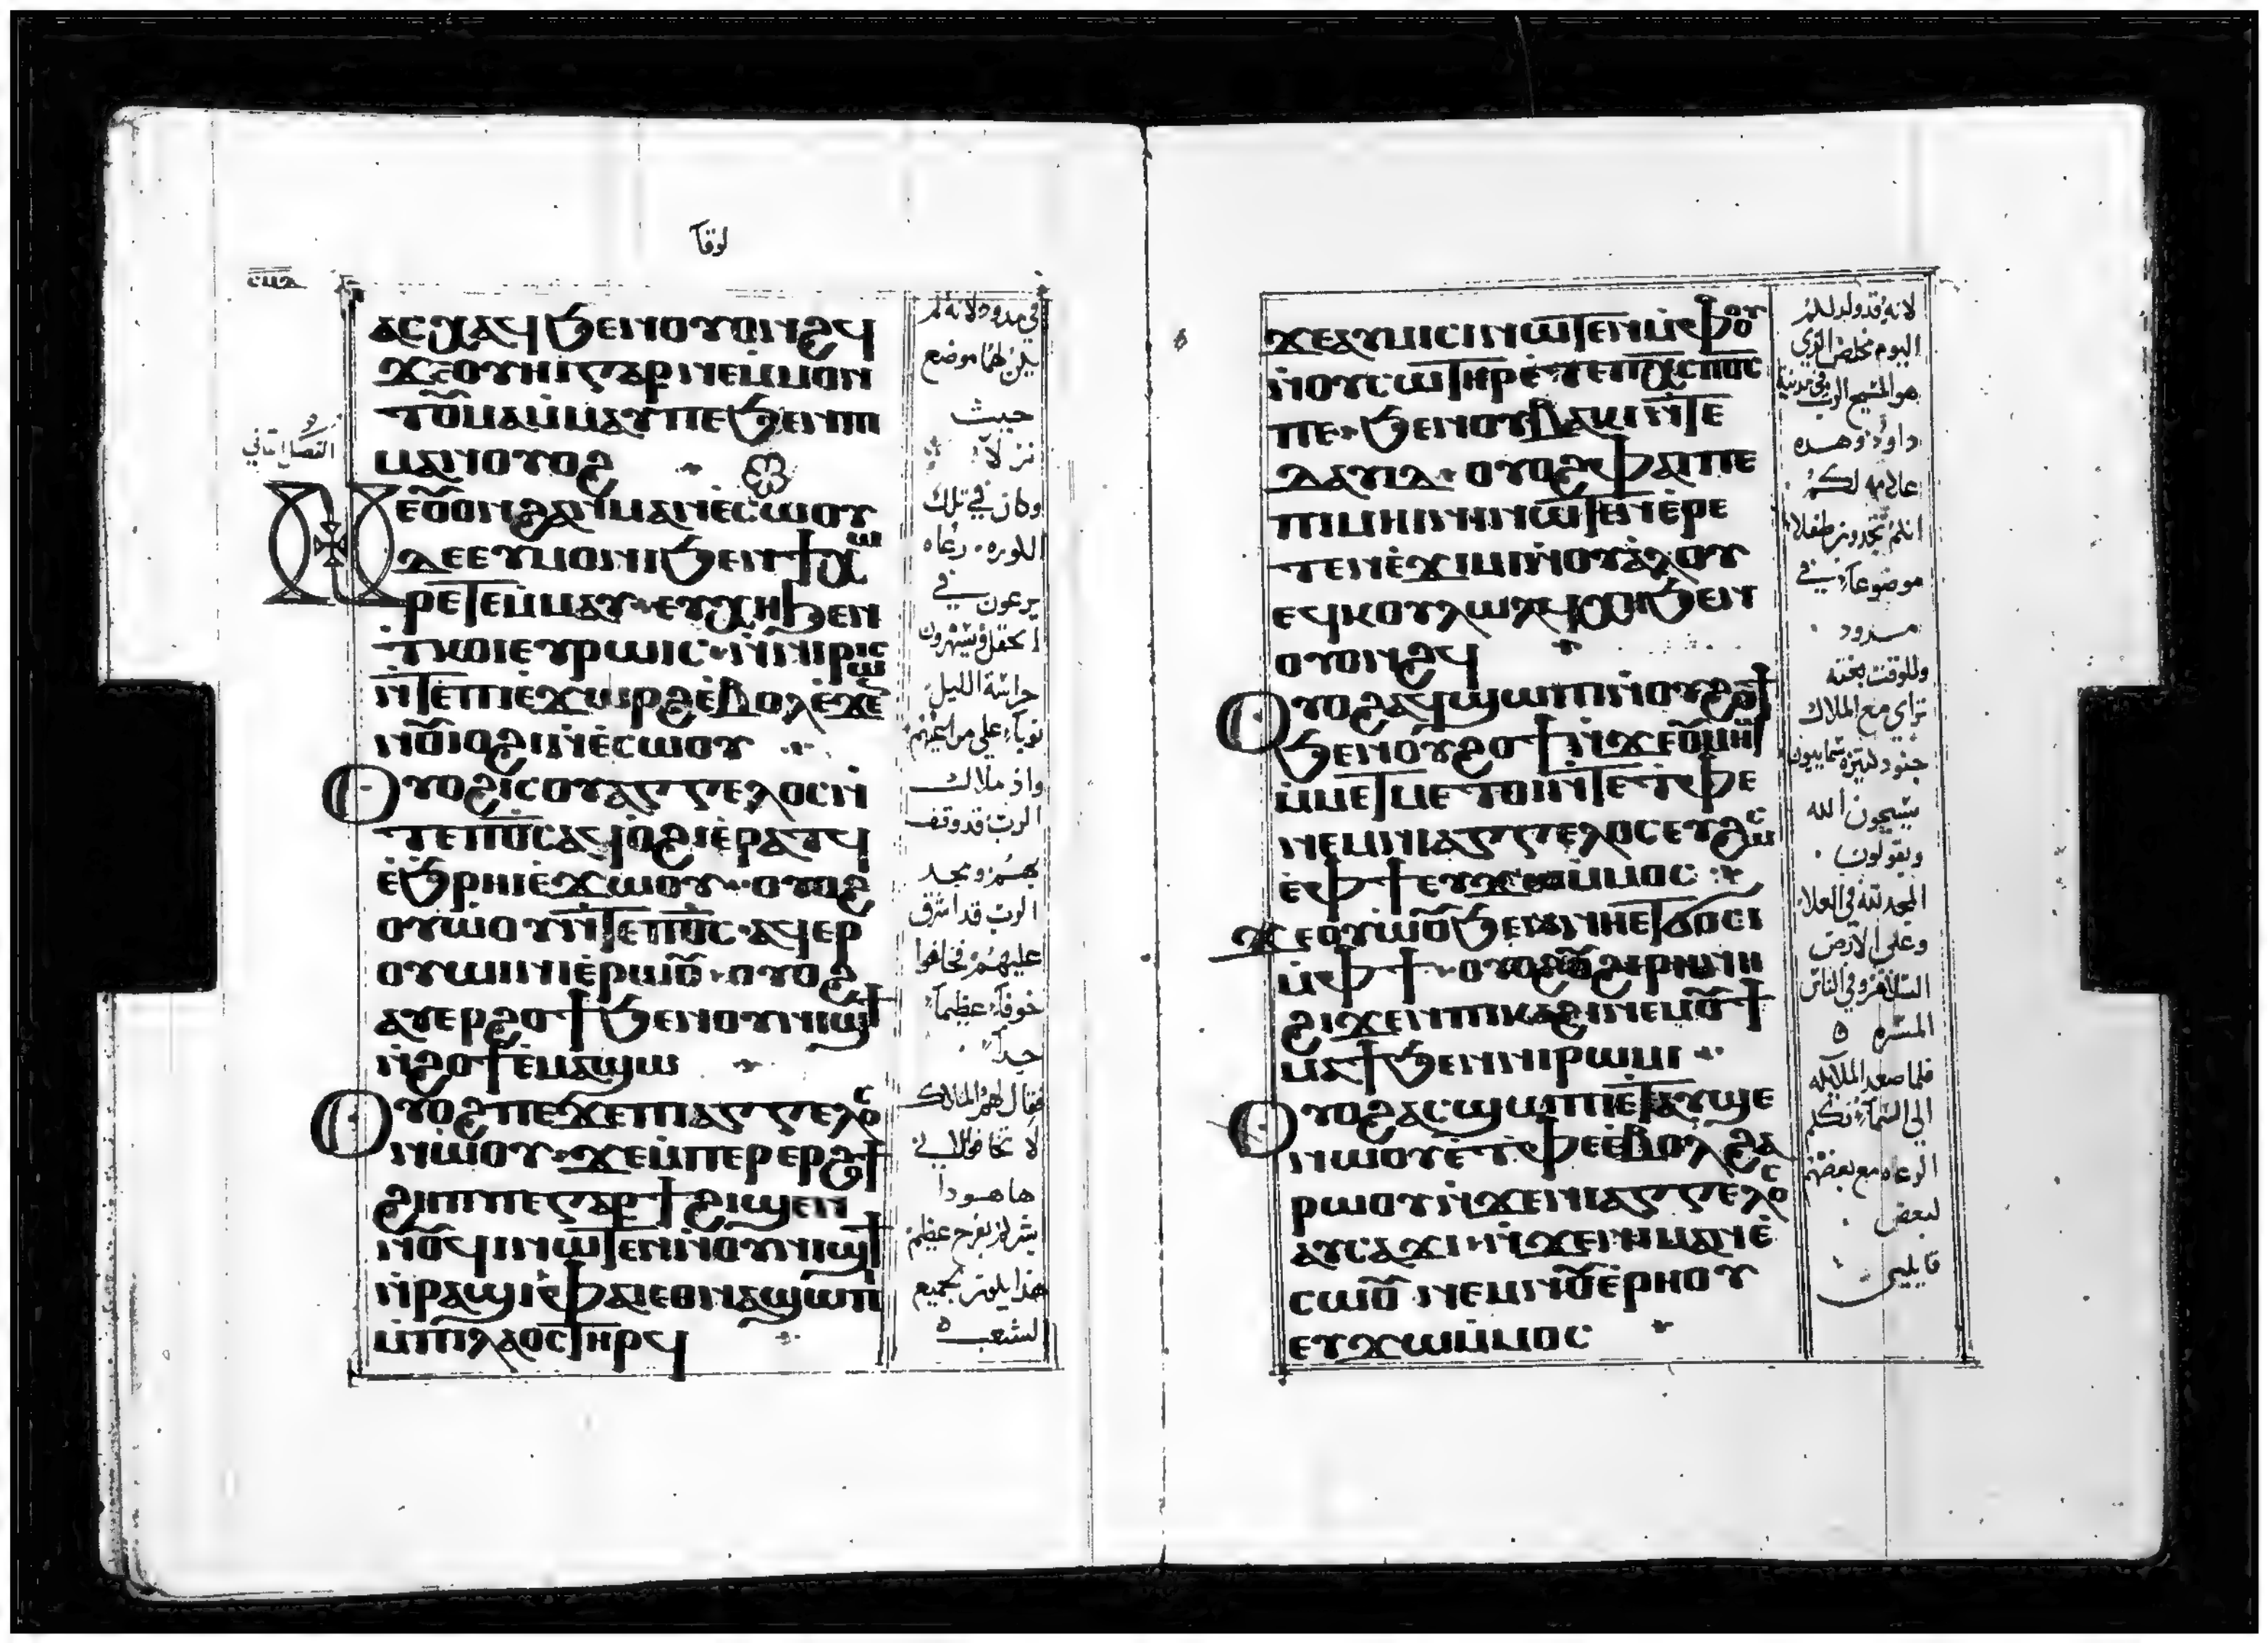 لوقا
ⲁⲥⲭⲁϥ ϧⲉⲛⲟⲩⲟⲛϩϥ
ϫⲉⲟⲩⲏⲓ ⲅⲁⲣ ⲛⲉⲙⲙⲟⲛ
ⲧⲟⲩⲙⲁⲙⲙⲁⲩⲡⲉ ϧⲉⲛⲡⲓ
ⲙⲁⲛⲟⲩⲟϩ
الفصل الثاني
ⲛⲉⲟⲩⲟⲛϩⲁⲛⲙⲁⲛⲉ̀ⲥⲱⲟⲩ
ⲇⲉ ⲉⲩⲙⲟⲛⲓ ϧⲉⲛϯⲭⲱ
ⲣⲁⲉⲧⲉⲙⲙⲁⲩ ⲉⲩⲭⲏ ϧⲉⲛ
ⲧⲕⲟⲓ ⲉⲩⲣⲱⲓⲥ ⲛ̀ⲛⲓⲟⲩⲣϣⲓ
ⲛ̀ⲧⲉⲡⲓⲉ̀ϫⲱⲣϩ ⲉ̀ⲃⲟⲗ ⲉ̀ϫⲉⲛ
ⲛⲟⲩⲟϩⲓ ⲛ̀ⲉ̀ⲥⲱⲟⲩ
ⲟⲩⲟϩ ⲓⲥ ⲟⲩⲁⲅⲅⲉⲗⲟⲥ ⲛ̀
ⲧⲉⲡ⳪ ⲁϥⲟ̀ϩⲓ ⲉ̀ⲣⲁⲧϥ
ⲉ̀ϧⲣⲏⲓ ⲉ̀ϫⲱⲟⲩ ⲟⲩⲟϩ
ⲟⲩⲱ̀ⲟⲩ ⲛ̀ⲧⲉⲡ⳪ ⲁϥⲉⲣ
ⲟⲩⲱⲓⲛⲓ ⲉ̀ⲣⲱⲟⲩ ⲟⲩⲟϩ
ⲁⲩⲉⲣϩⲟϯ ϧⲉⲛⲟⲩⲛⲓϣϯ
ⲛ̀ϩⲟϯ ⲉ̀ⲙⲁϣⲱ
ⲟⲩⲟϩ ⲡⲉϫⲉ ⲡⲓⲁⲅⲅⲉⲗⲟⲥ
ⲛⲱⲟⲩ ϫⲉⲙ̀ⲡⲉⲣⲉⲣϩⲟϯ
ϩⲏⲡⲡⲉ ⲅⲁⲣ ϯϩⲓϣⲉⲛ
ⲛⲟⲩϥⲓ ⲛⲱⲧⲉⲛ ⲛ̀ⲟⲩⲛⲓϣϯ
ⲛ̀ⲣⲁϣⲓ ⲫⲁⲓ ⲉⲑⲛⲁϣⲱⲡⲓ
ⲙ̀ⲡⲓⲗⲁⲟⲥ ⲧⲏⲣϥ
حيث
نزلا
وكان في تلك
الكوره رعاه
يرعون في
الحقل ويسهرون
حراسة الليل
نوبا على مراعيهم
واذ ملاك
الرب قد وقف
بهم ومجد
الرب قد اشرق
عليهم فخافوا
خوفا عظيما
جدا
فقال لهم الملاك
لا تخافوا لاني
ها هودا
بشركم بفرح عظيم
هذا يكون لجميع
الشعب
ϫⲉⲁⲩⲙⲓⲥⲓ ⲛⲱⲧⲉⲛ ⲙ̀ⲫⲟⲟⲩ
ⲛ̀ⲟⲩⲥⲱⲧⲏⲣ ⲉ̀ⲧⲉ ⲡⲭⲥ ⲡⲟⲥ
ⲡⲉ ϧⲉⲛⲟⲩⲃⲁⲕⲓ ⲛ̀ⲧⲉ
ⲇⲁⲩⲓⲇ ⲟⲩⲟϩ ⲫⲁⲓⲡⲉ
ⲡⲓⲙⲏⲓⲛⲓ ⲛⲱⲧⲉⲛ ⲉ̀ⲣⲉ
ⲧⲉⲛⲉ̀ϫⲓⲙⲓ ⲛ̀ⲟⲩⲁ̀ⲗⲟⲩ
ⲉϥⲕⲟⲩⲗⲱⲗ ⲉϥⲭⲏ ϧⲉⲛ
ⲟⲩⲟⲛϩϥ
ⲟⲩⲟϩ ⲁϥϣⲱⲡⲓ ⲛ̀ⲟⲩϩⲟϯ
ϧⲉⲛⲟⲩϩⲟϯ ⲛ̀ϫⲉⲟⲩⲙⲏϣ
ⲙ̀ⲙⲉⲧⲙⲁⲧⲟⲓ ⲛ̀ⲧⲉⲧⲫⲉ
ⲛⲉⲙⲡⲓⲁⲅⲅⲉⲗⲟⲥ ⲉⲩϩⲱⲥ
ⲉ̀ⲫϯ ⲉⲩϫⲱ ⲙ̀ⲙⲟⲥ
ϫⲉⲟⲩⲱ̀ⲟⲩ ϧⲉⲛⲛⲏⲉⲧϭⲟⲥⲓ
ⲙ̀ⲫϯ ⲟⲩⲟϩ ⲟⲩϩⲓⲣⲏⲛⲏ
ϩⲓϫⲉⲛⲡⲓⲕⲁϩⲓ ⲛⲉⲙⲟⲩϯ
ⲙⲁϯ ϧⲉⲛⲛⲓⲣⲱⲙⲓ
ⲟⲩⲟϩ ⲁⲥϣⲱⲡⲓ ⲉⲧⲁⲩϣⲉ
ⲛⲱⲟⲩ ⲉ̀ⲧⲫⲉ ⲉ̀ⲃⲟⲗ ϩⲁ
ⲣⲱⲟⲩ ⲛ̀ϫⲉⲛⲓⲁⲅⲅⲉⲗⲟⲥ
ⲁⲩⲥⲁϫⲓ ⲛ̀ϫⲉⲛⲓⲙⲁⲛⲉ̀
ⲥⲱⲟⲩ ⲛⲉⲙⲛⲟⲩⲉ̀ⲣⲏⲟⲩ
ⲉⲩϫⲱ ⲙ̀ⲙⲟⲥ
لانه قد ولد لكم
اليوم مخلص الذي
هو المسيح الرب في مدينة
داود وهده
علامه لكم
انكم تجدون طفلا
موضوعا في
مدود
وللوقت بغته
تراى مع الملاك
جنود كثيرة سماييون
يسبحون الله
ويقولون
المجد لله في العلاء
وعلى الارض
السلام وفي الناس
المسره
فلما صعد الملايكه
الى السماء تكلم
الرعاه مع بعضهم
لبعض
قايلين